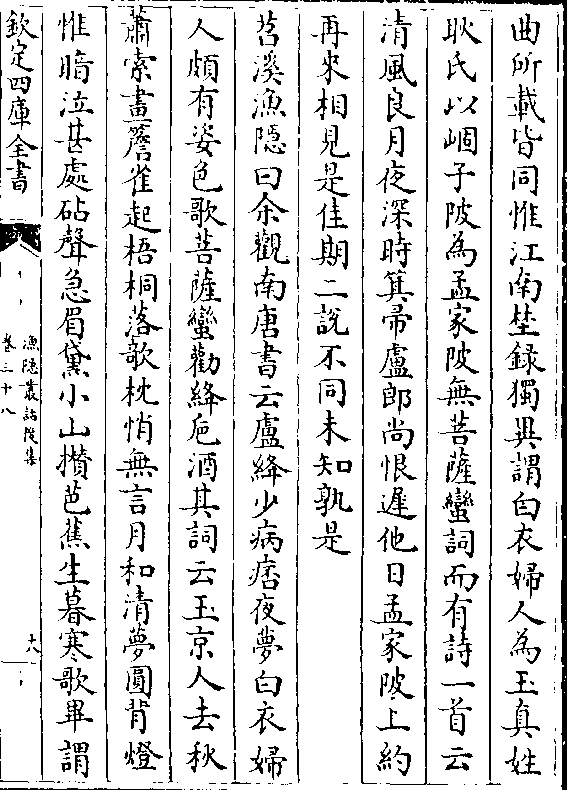 曲所載皆同惟江南埜録獨異謂白衣婦人為玉真姓
耿氏以崓子陂為孟家陂無菩薩蠻詞而有詩一首云
清風良月夜深時箕帚盧郎尚恨遲他日孟家陂上約
再來相見是佳期二說不同未知孰是
苕溪漁隠曰余觀南唐書云盧絳少病痁夜夢白衣婦
人頗有姿色歌菩薩蠻勸絳巵酒其詞云玉京人去秋
蕭索畫簷雀起梧桐落欹枕悄無言月和清夢圓背燈
惟暗泣甚處砧聲急眉黛小山攢芭蕉生暮寒歌畢謂
欽定四庫全書
漁隠叢話後集
卷三十八
十八